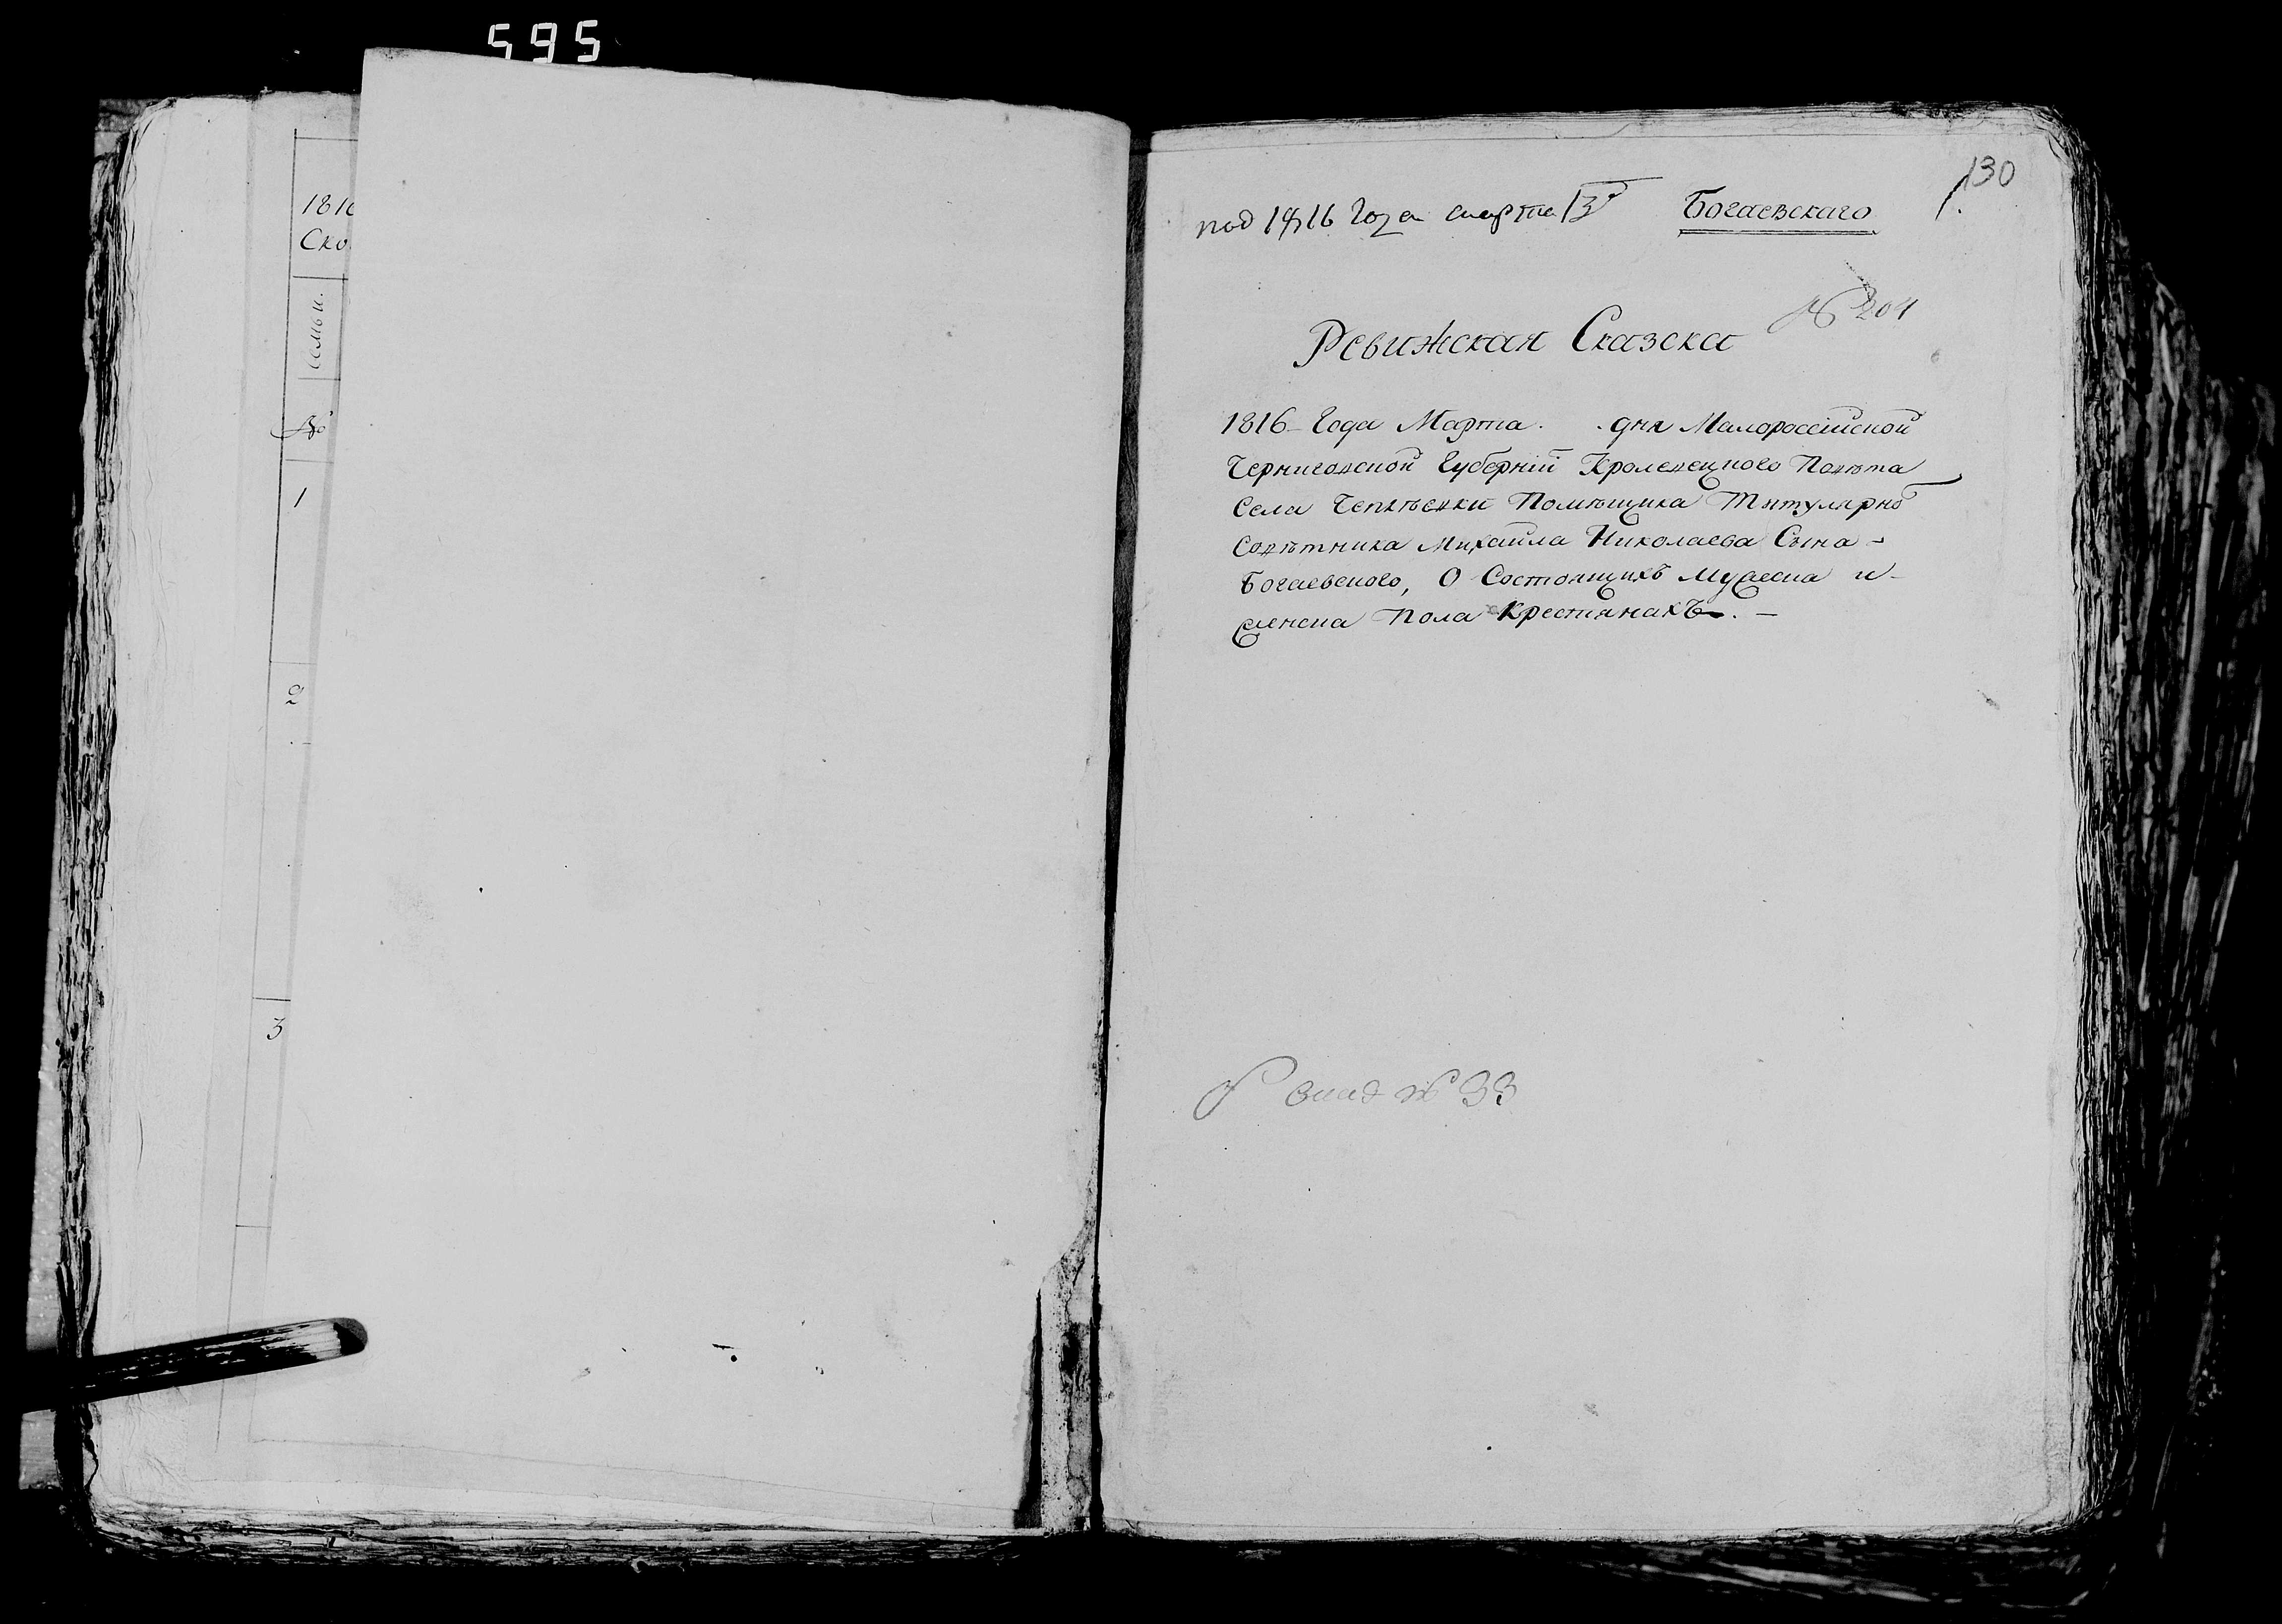 595
1816
Ско
семьи.
№
1
2
3
130
под 1816 года марта 13 Богаевскаго
№ 204
Ревижская Сказска
1816 Года Марта. дня Малороссійской
Черниговской Губерніи Кролевецкого Повѣта
Села Чепліевки Помѣщика Титулярно
Совѣтника Михайла Николаева Сына -
Богаевского, О Состоящихъ Мужеска и -
Женска Пола Крестянахъ. -
№ 33